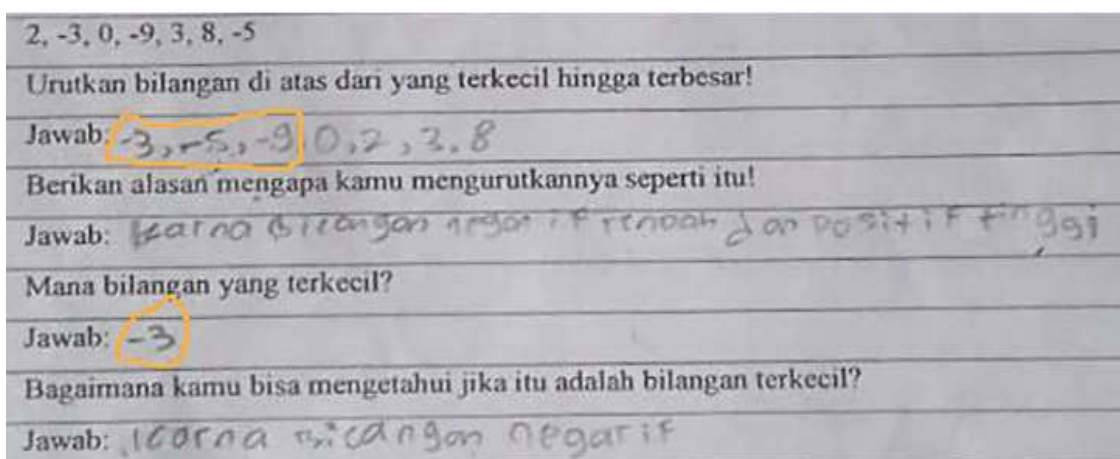 2, -3, 0, -9, 3, 8, -5
Urutkan bilangan di atas dari yang terkecil hingga terbesar!
Jawab: -3, -5, -9, 0, 2, 3, 8
Berikan alasan mengapa kamu mengurutkannya seperti itu!
Jawab: karna bilangan negatif rendah dan positif tinggi
Mana bilangan yang terkecil?
Jawab: -3
Bagaimana kamu bisa mengetahui jika itu adalah bilangan terkecil?
Jawab: karna bilangan negatif